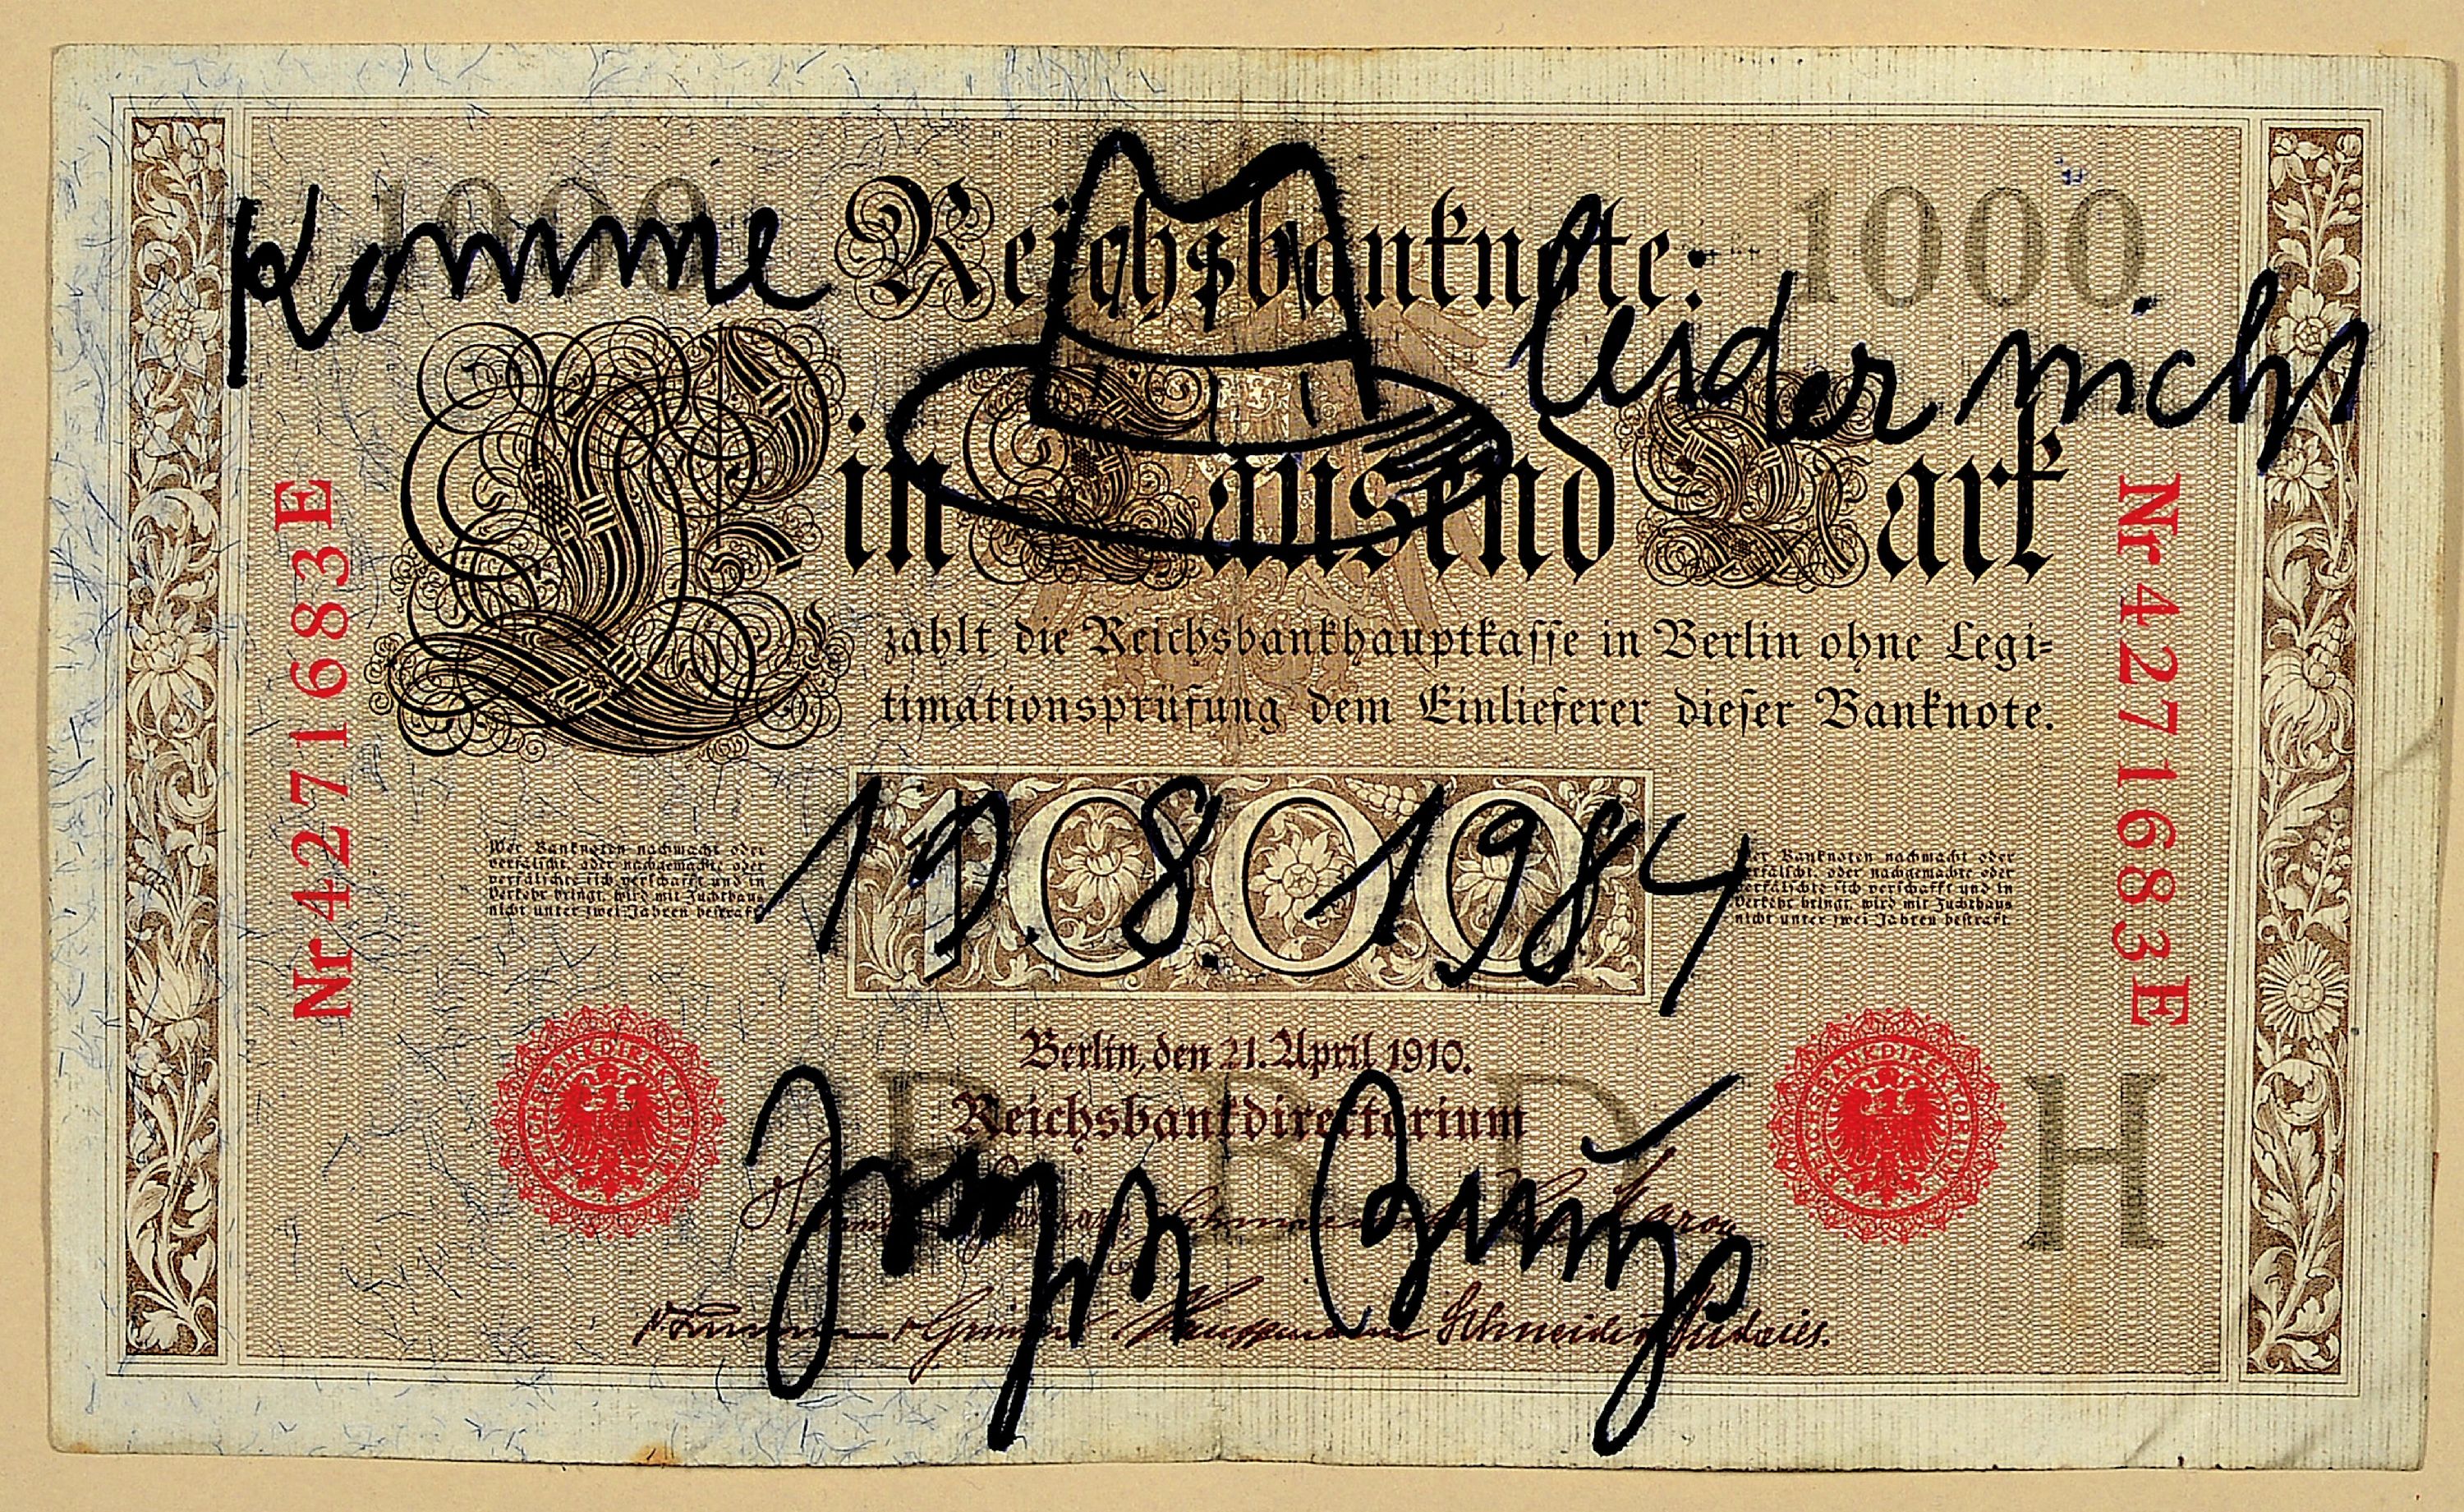 1000 Reichsbanknote: 1000
Komme leider nicht
Ein Tausend Mark
zahlt die Reichsbankhauptkasse in Berlin ohne Legi=
timationsprüfung dem Einlieferer dieser Banknote.
Nr 4271683E
Nr 4271683E
1000
19.8.1984
Wer Banknoten nachmacht oder
verfälscht, oder nachgemachte oder
verfälschte sich verschafft und in
Verkehr bringt, wird mit Zuchthaus
nicht unter zwei Jahren bestraft.
Wer Banknoten nachmacht oder
verfälscht, oder nachgemachte oder
verfälschte sich verschafft und in
Verkehr bringt, wird mit Zuchthaus
nicht unter zwei Jahren bestraft.
Berlin, den 21. April 1910.
Reichsbankdirektorium
REICHSBANKDIREKTORIUM
REICHSBANKDIREKTORIUM
R B D H
Joseph Beuys
v. Grimm Kauffmann Schneider Budczies.